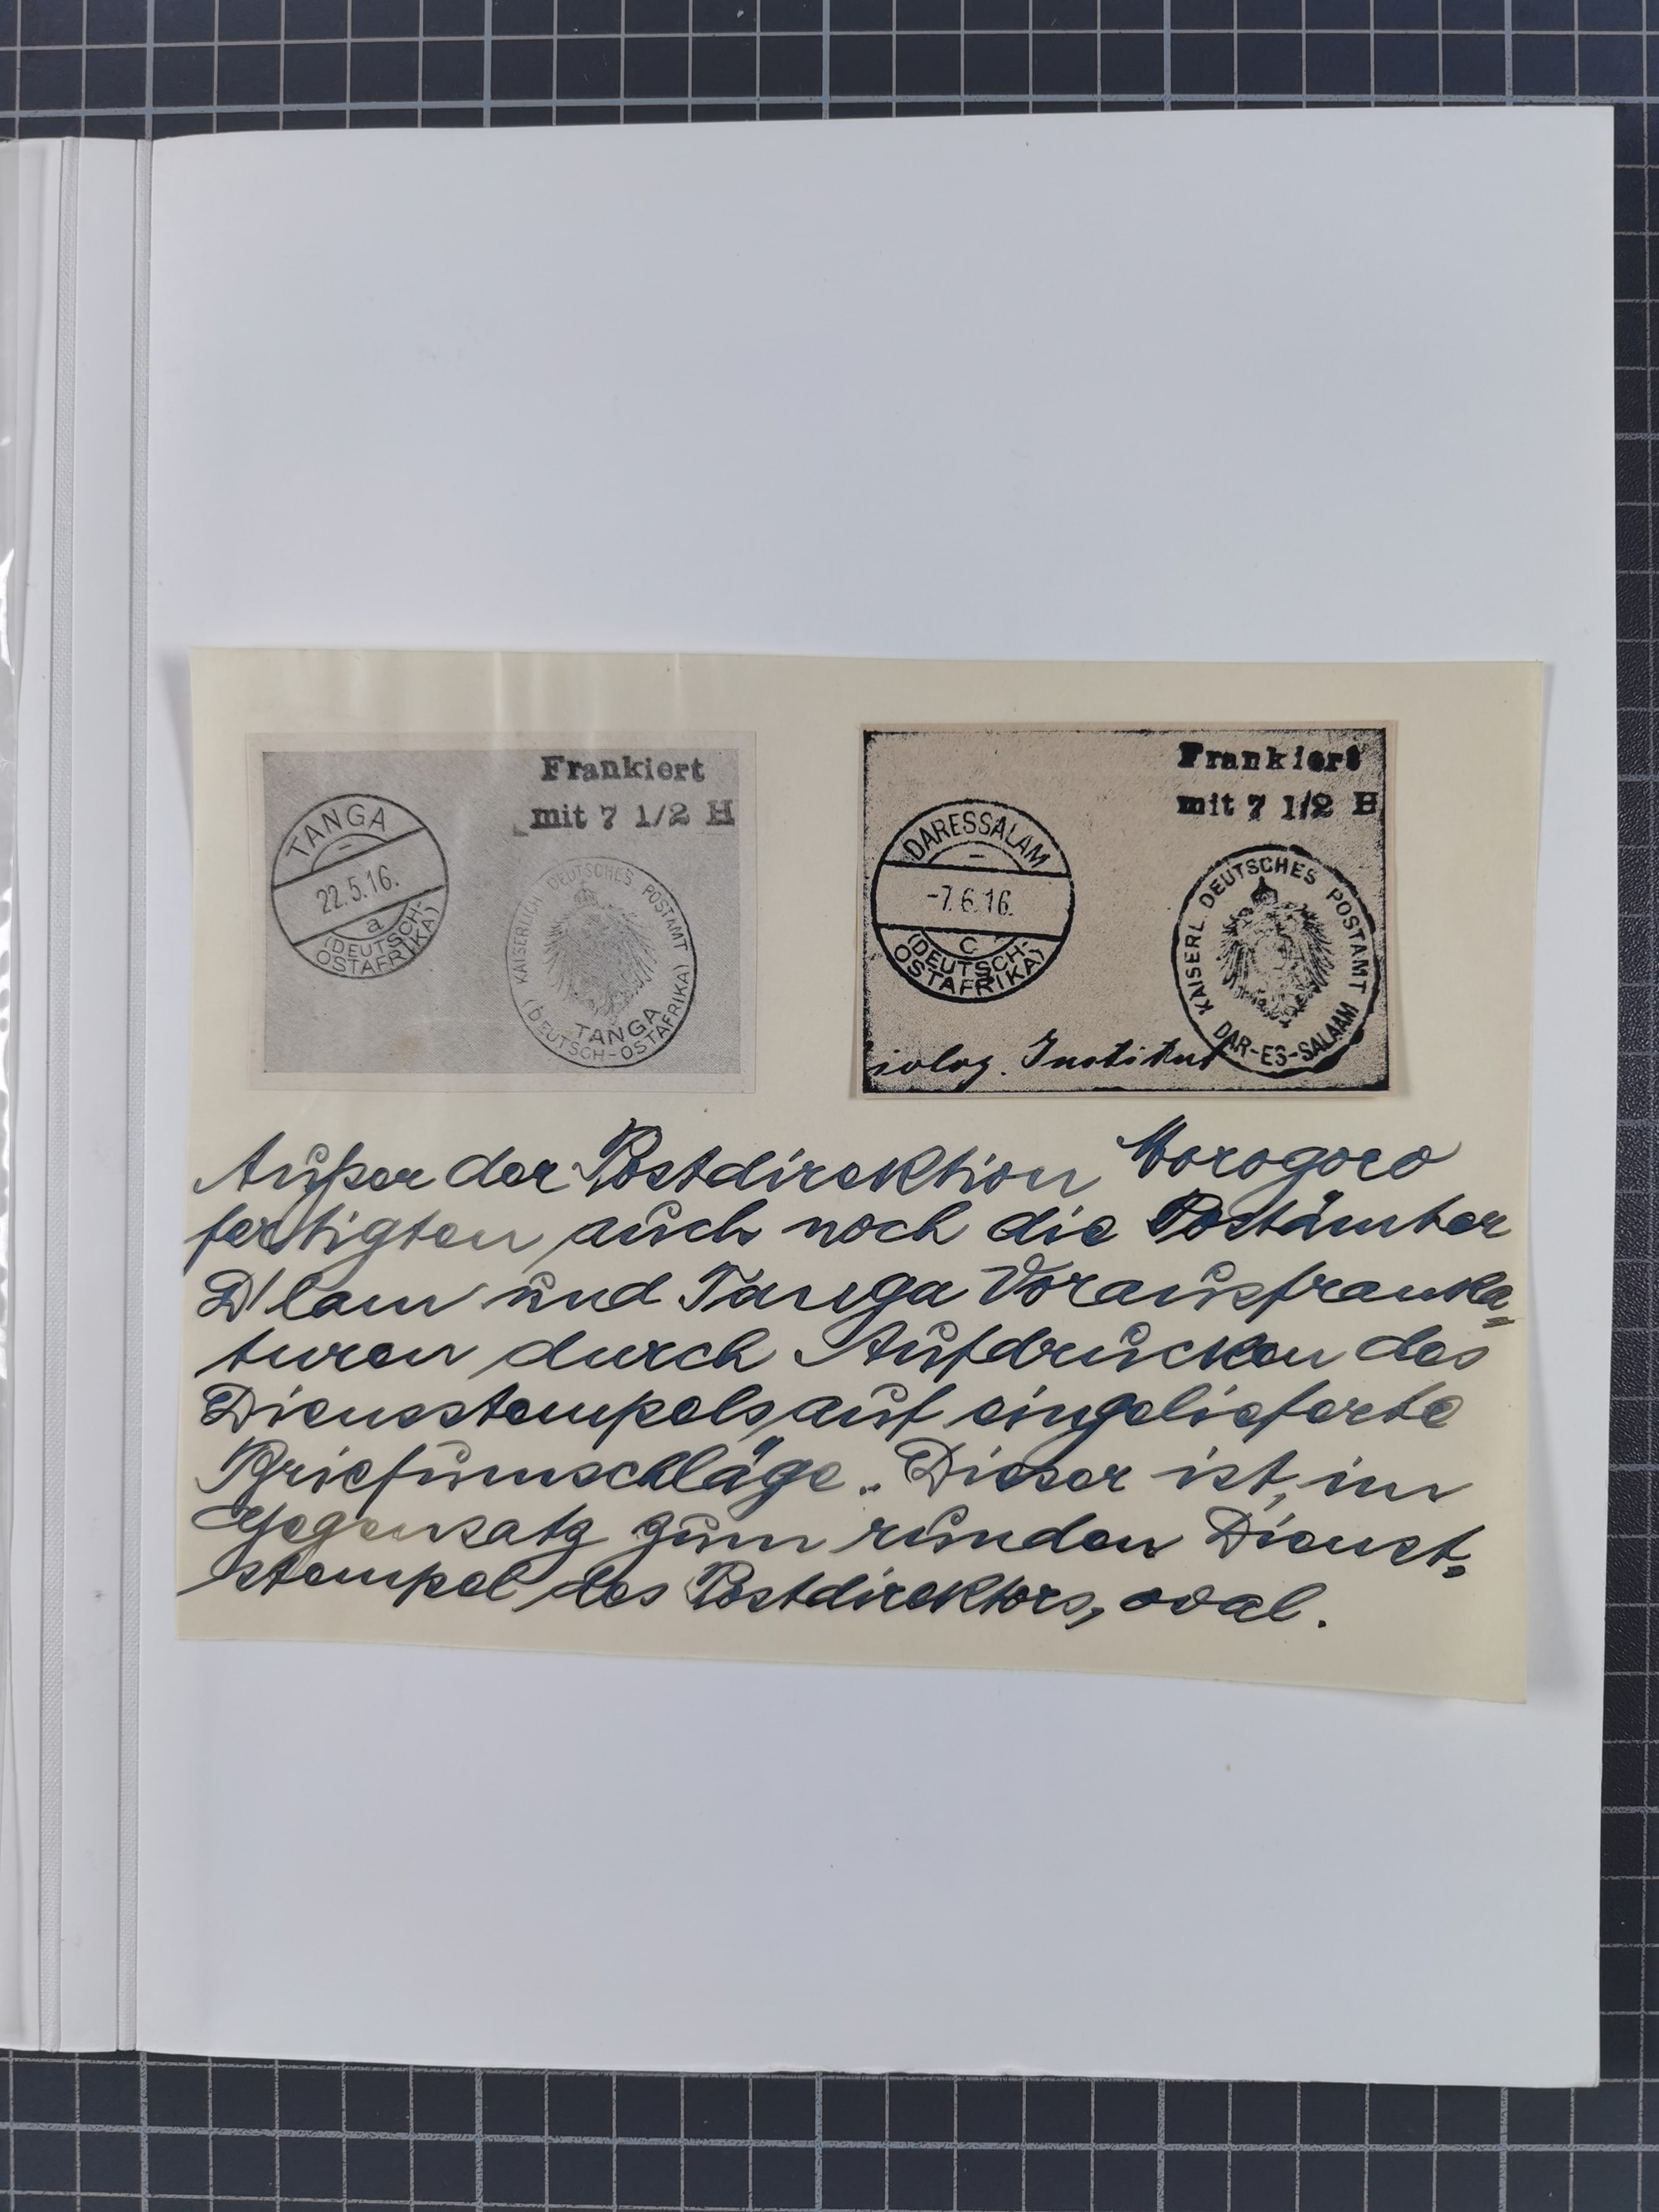 Frankiert
mit 7 1/2 H
TANGA
22.5.16.
a
(DEUTSCH-
OSTAFRIKA)
KAISERLICH DEUTSCHES POSTAMT
TANGA
(DEUTSCH-OSTAFRIKA)
Frankiert
mit 7 1/2 H
DARESSALAM
-7.6.16.
c
(DEUTSCH-
OSTAFRIKA)
KAISERL. DEUTSCHES POSTAMT
DAR-ES-SALAAM
iolog. Institut
Außer der Postdirektion Morogoro
fertigten auch noch die Postämter
D'lam und Tanga Vorausfranka=
turen durch Aufdrucken des
Dienststempels auf eingelieferte
Briefumschläge. Dieser ist, im
Gegensatz zum runden Dienst=
stempel des Postdirektors, oval.